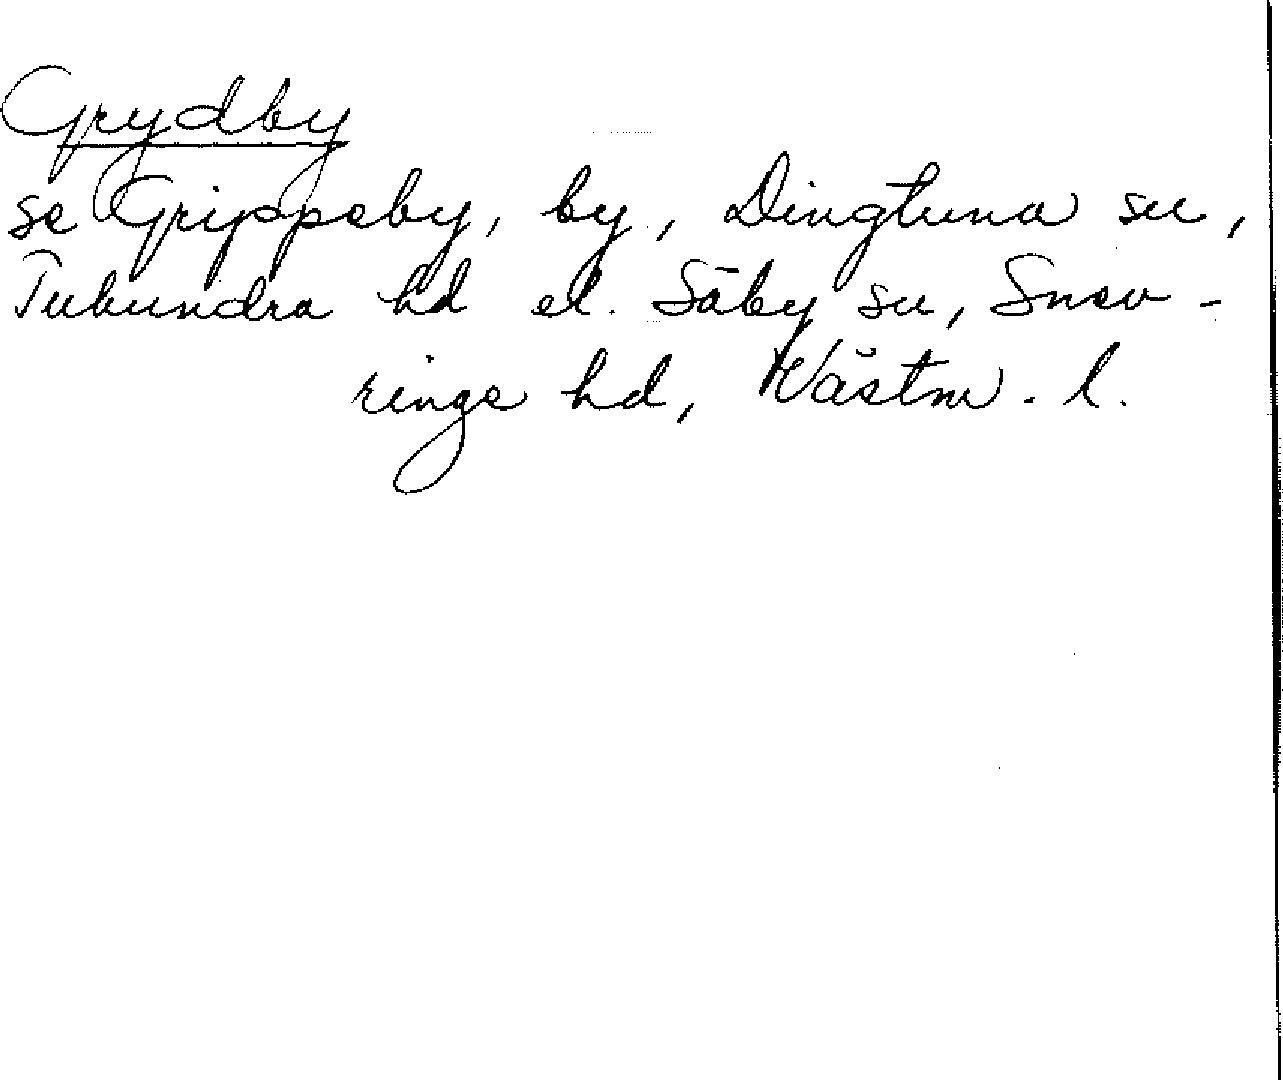 Grydby
se Grippeby, by, Dingtuna sn,
Tuhundra hd el. Säby sn, Snev-
ringe hd, Västm. l.